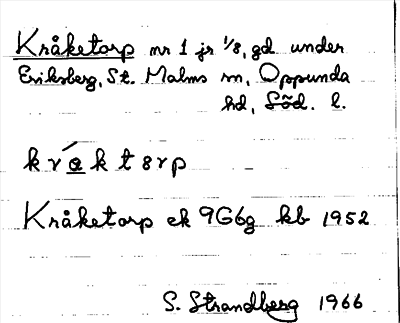 Kråketorp nr 1 jr 1/8, gd under
Eriksberg, St. Malms sn, Oppunda
hd, Söd. l.
kråktɵrp
Kråketorp ek 9G6g kb 1952
S. Strandberg 1966